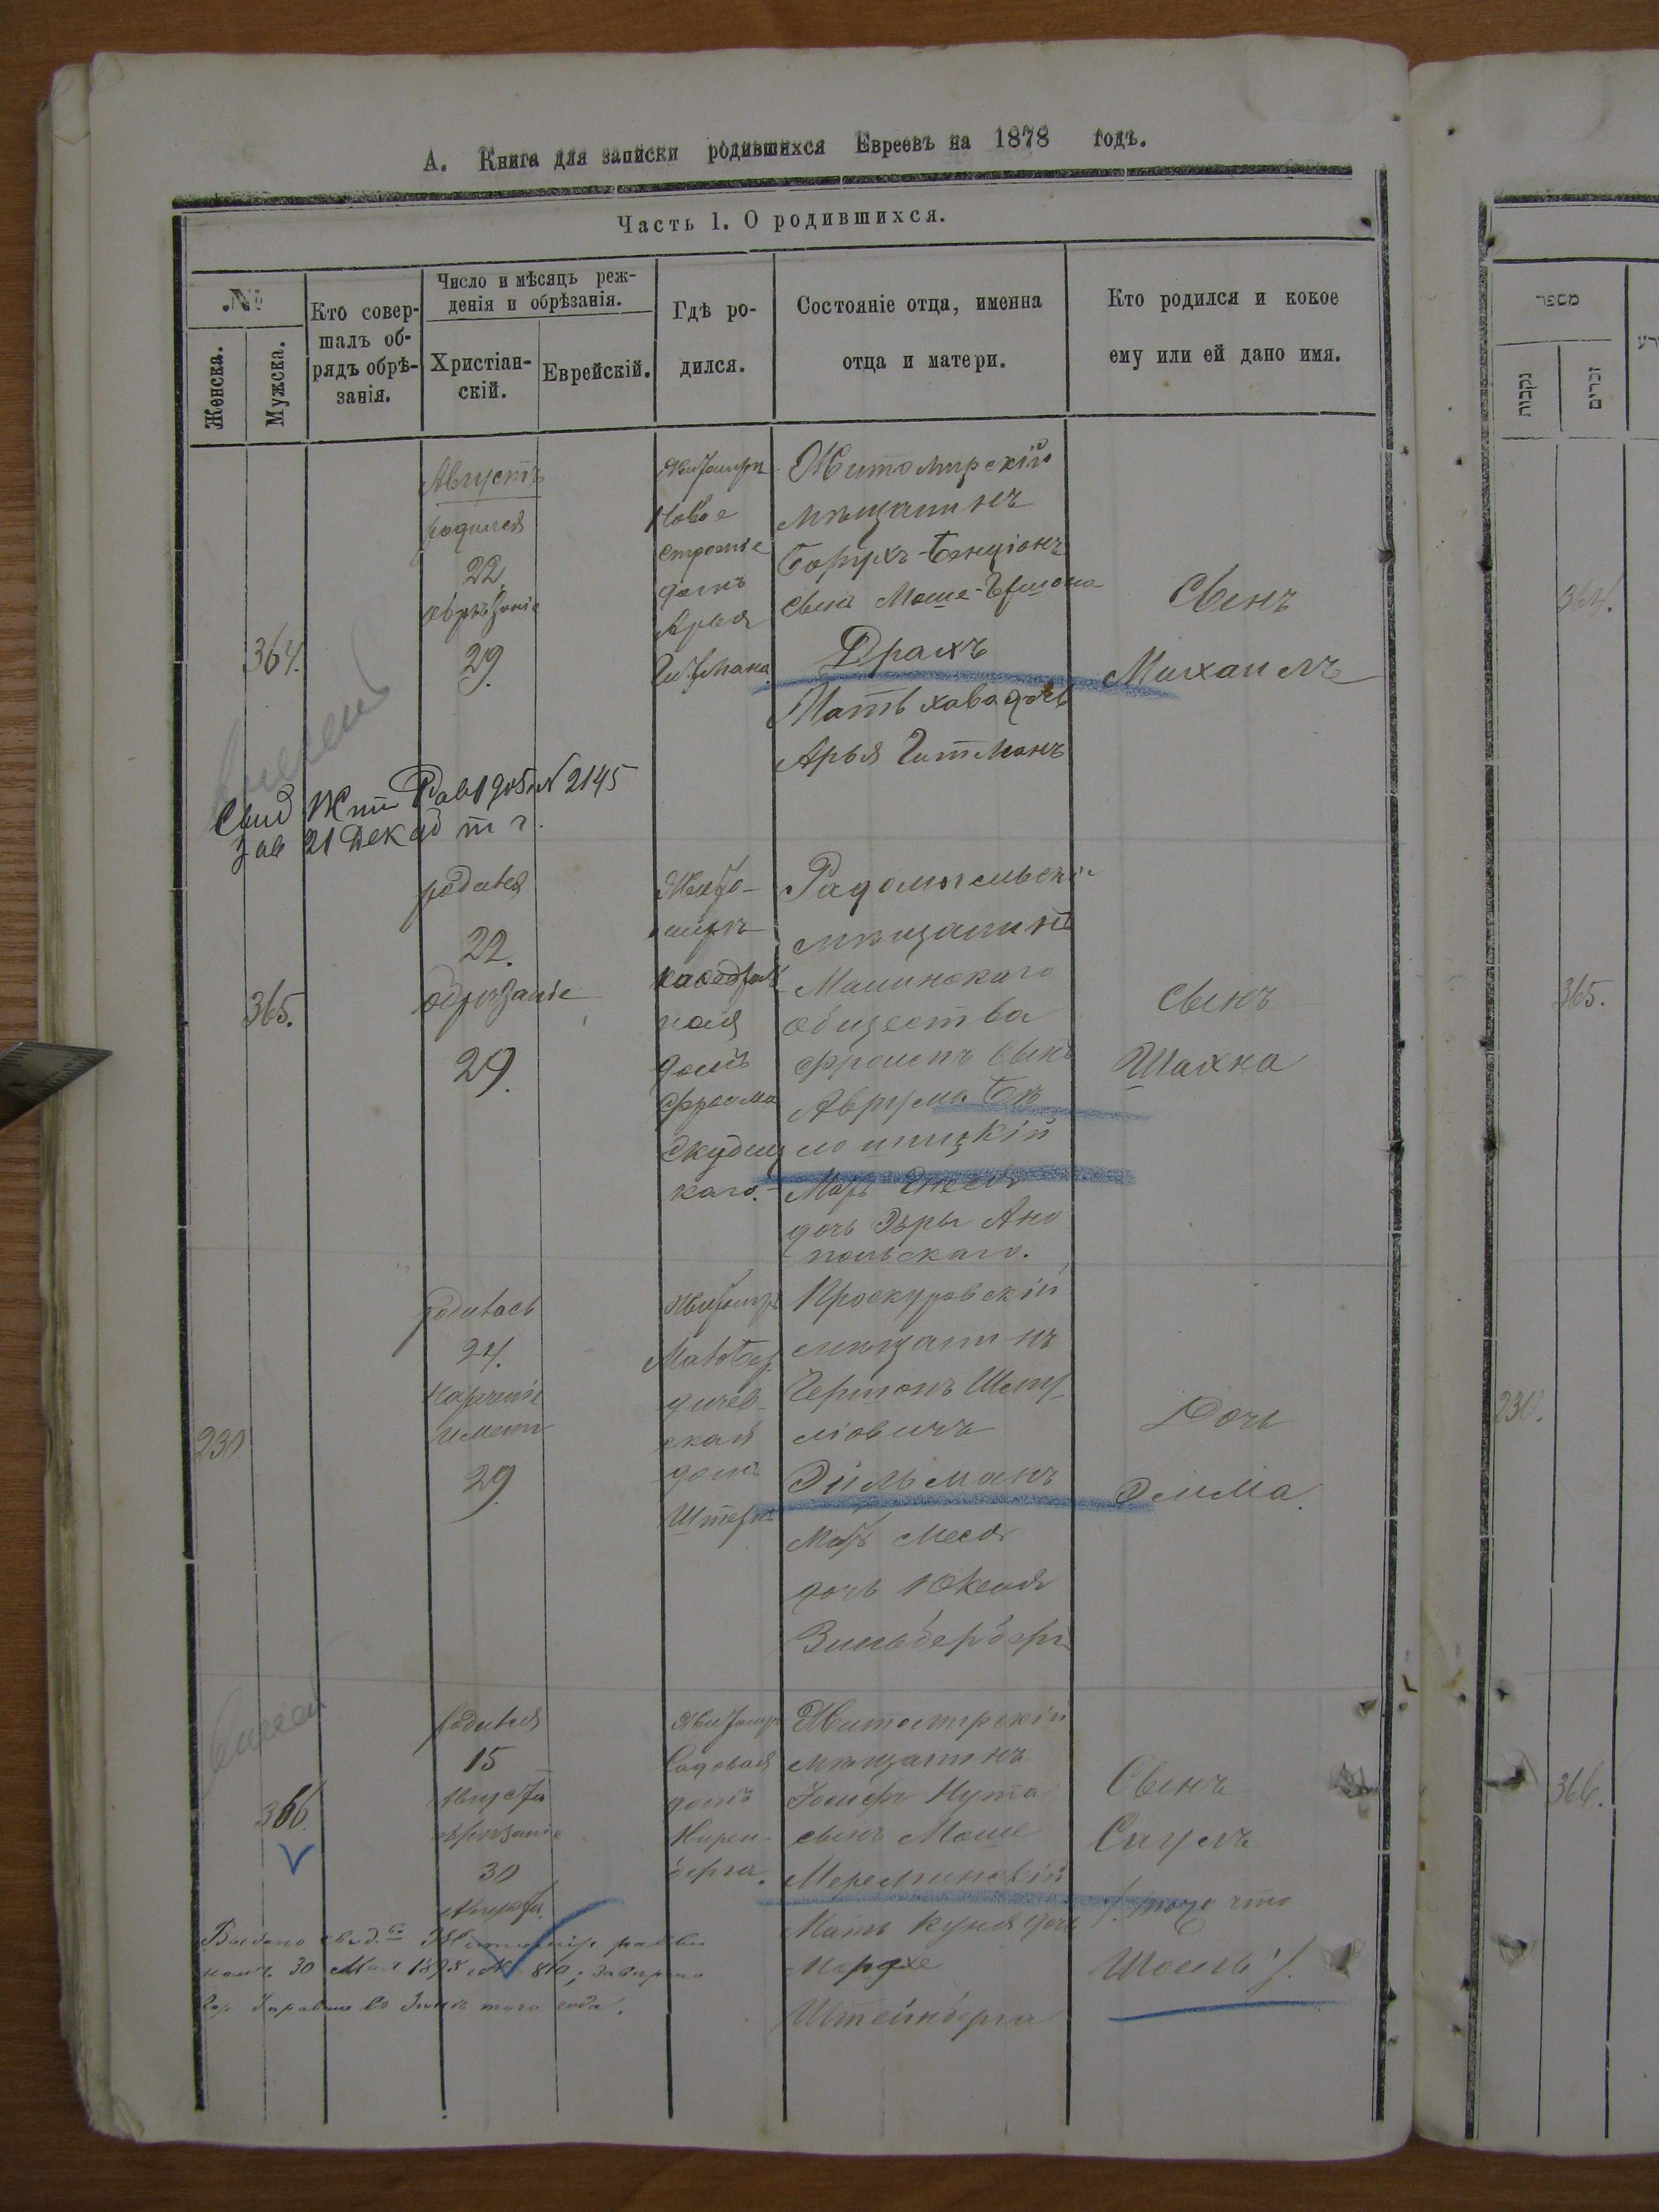 А. Книга для записки родившихся Евреевъ на 1878 годъ.
Часть 1. О родившихся.
№
Женска.
Мужска.
Кто совер-
шалъ об-
рядъ обрѣ-
занія.
Число и мѣсяцъ реж-
денія и обрѣзанія.
Христіан-
скій.
Еврейскій.
Гдѣ ро-
дился.
Состояніе отца, именна
отца и матери.
Кто родился и кокое
ему или ей дано имя.
מספר
נקבות
זכרים
364.
Августъ
родился
22
обрѣзаніе
29.
Житомиръ
Новое
строеніе
домъ
Арья
Гитмана
Житомирскій
мѣщанинъ
Борухъ-Бенціонъ
сынъ Моше-
Драхъ
Мать хава дочь
Арья Гитманъ
Сынъ
Михаилъ
364.
Свид Жит Рав 1905 № 2145
Зав 21 Декаб т г.
365.
родился
22.
обрѣзаніе
29.
Жито-
миръ
каөедраль
ная
домъ
Фроима
Скудиц
каго.
Радомысльскій
мѣщанинъ
Малинскаго
общества
Фроимъ Сынъ
Аврума Бѣ
лошицкій
Мать
дочь Эзры Ано
польскаго.
Сынъ
Шахна
365.
230
родилась
24.
нареченіе
имени
29.
Житомиръ
МалоБер
дичев-
ская
домъ
Штерна
Проскуровскій
мѣщанинъ
Гершонъ Шму
ліовичъ
Дильманъ
Мать Меся
дочь
Зильберберга
Дочь
Элма.
230.
366.
родился
15
Августа
обрѣзаніе
30
Августа
Житомиръ
Садовая
домъ
Ниренберга.
Житомирскій
мѣщанинъ
Іосифъ Нута
сынъ Моше
Мереминскій
Мать Куня дочь
Мордхе
Штейнберга
Сынъ
Саулъ
/: тоже что
Шоель :/.
366.
Выдано свид.во Житомір. равви
номъ 30 Мая 1898 № 810; Завѣрено
Гор. Управою въ Іюнѣ того года.